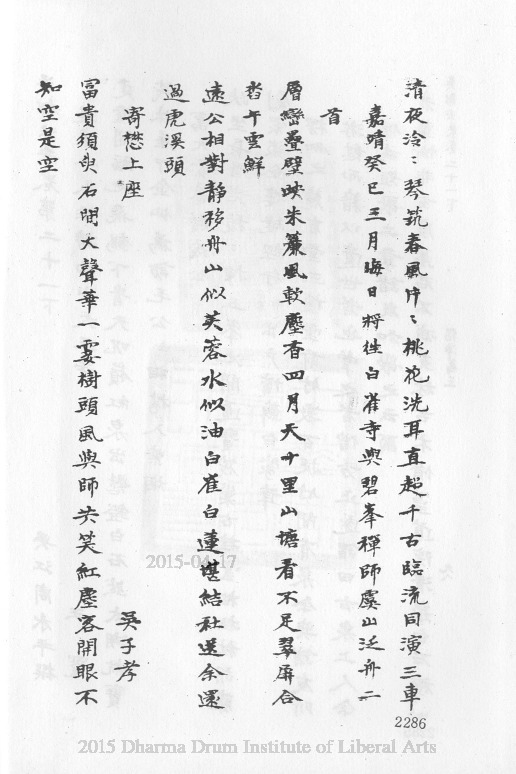 清夜泠〻琴筑春風片〻桃花洗耳直超千古臨流同演三車
嘉靖癸巳三月晦日將徃白雀寺與碧峯禪師虞山泛舟二
首
層巒疊壁映朱簾風軟塵香四月天十里山塘看不足翠屏合
沓午雲鮮
遠公相對靜移舟山似芙蓉水似油白雀白蓮堪結社送余還
過虎溪頭
寄懋上座
吳子孝
富貴須臾石間火聲華一霎樹頭風與師共笑紅塵客開眼不
知空是空
2286
2015-04-17
2015 Dharma Drum Institute of Liberal Arts